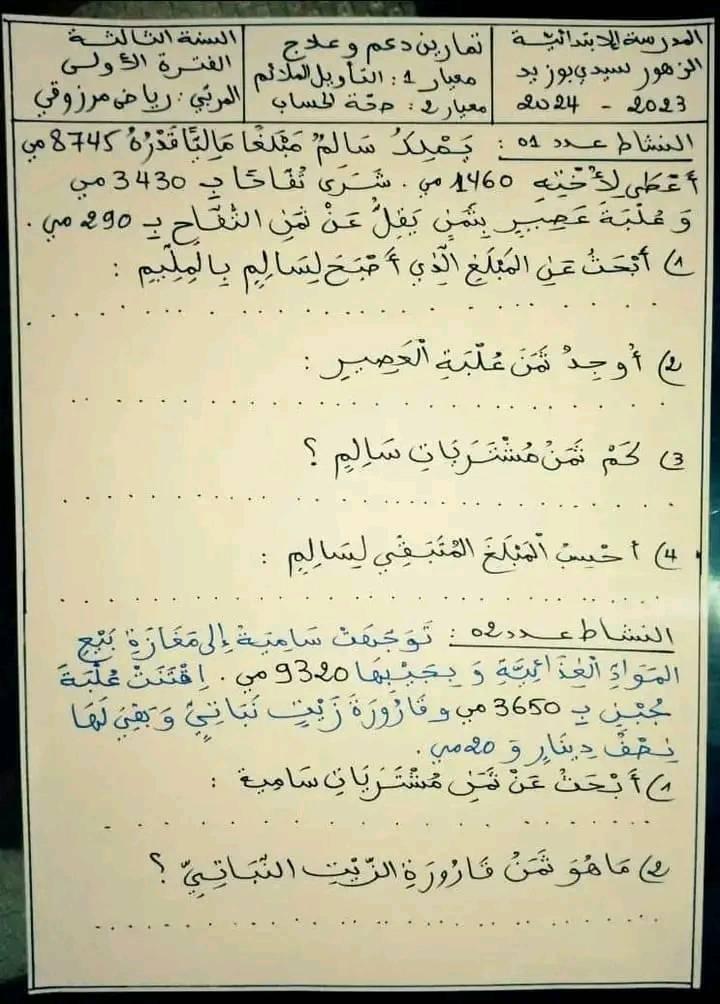 المدرسة الابتدائية
الزهور سيدي بوزيد
2023 - 2024
تمارين دعم وعلاج
معيار 1: التأويل الملائم
معيار 2: صحّة الحساب
السنة الثالثة
الفترة الأولى
المربّي: رياض مرزوقي
النشاط عـدد 01: يَمْلِكُ سَالِمٌ مَبْلَغًا مَالِيًّا قَدْرُهُ 8745 مي
أَعْطَى لِأُخْتِهِ 1460 مي. شَرَى تُفَّاحًا بِـ 3430 مي
وَ عُلْبَةَ عَصِيرٍ بِثَمَنٍ يَقِلُّ عَنْ ثَمَنِ التُّفَّاحِ بِـ 290 مي.
1) أَبْحَثُ عَنِ المَبْلَغِ الَّذِي أَصْبَحَ لِسَالِمٍ بِالمِلِّيمِ :
2) أُوجِدُ ثَمَنَ عُلْبَةِ الْعَصِيرِ :
3) كَمْ ثَمَنُ مُشْتَرَيَاتِ سَالِمٍ ؟
4) أَحْسِبُ الْمَبْلَغَ المُتَبَقِّي لِسَالِمٍ :
النشاط عـدد 02: تَوَجَّهَتْ سَامِيَة إِلى مَغَازَةِ بَيْعِ
المَوَادِّ الْغِذَائِيَّةِ وَ بِجَيْبِهَا 9320 مي. اِقْتَنَتْ عُلْبَةَ
جُبْنٍ بِـ 3650 مي و قَارُورَةَ زَيْتٍ نَبَاتِيٍّ وَ بَقِيَ لَهَا
نِصْفُ دِينَارٍ وَ 20 مي.
1) أَبْحَثُ عَنْ ثَمَنِ مُشْتَرَيَاتِ سَامِية :
2) مَا هُوَ ثَمَنُ قَارُورَةِ الزَّيْتِ النَّبَاتِيِّ ؟